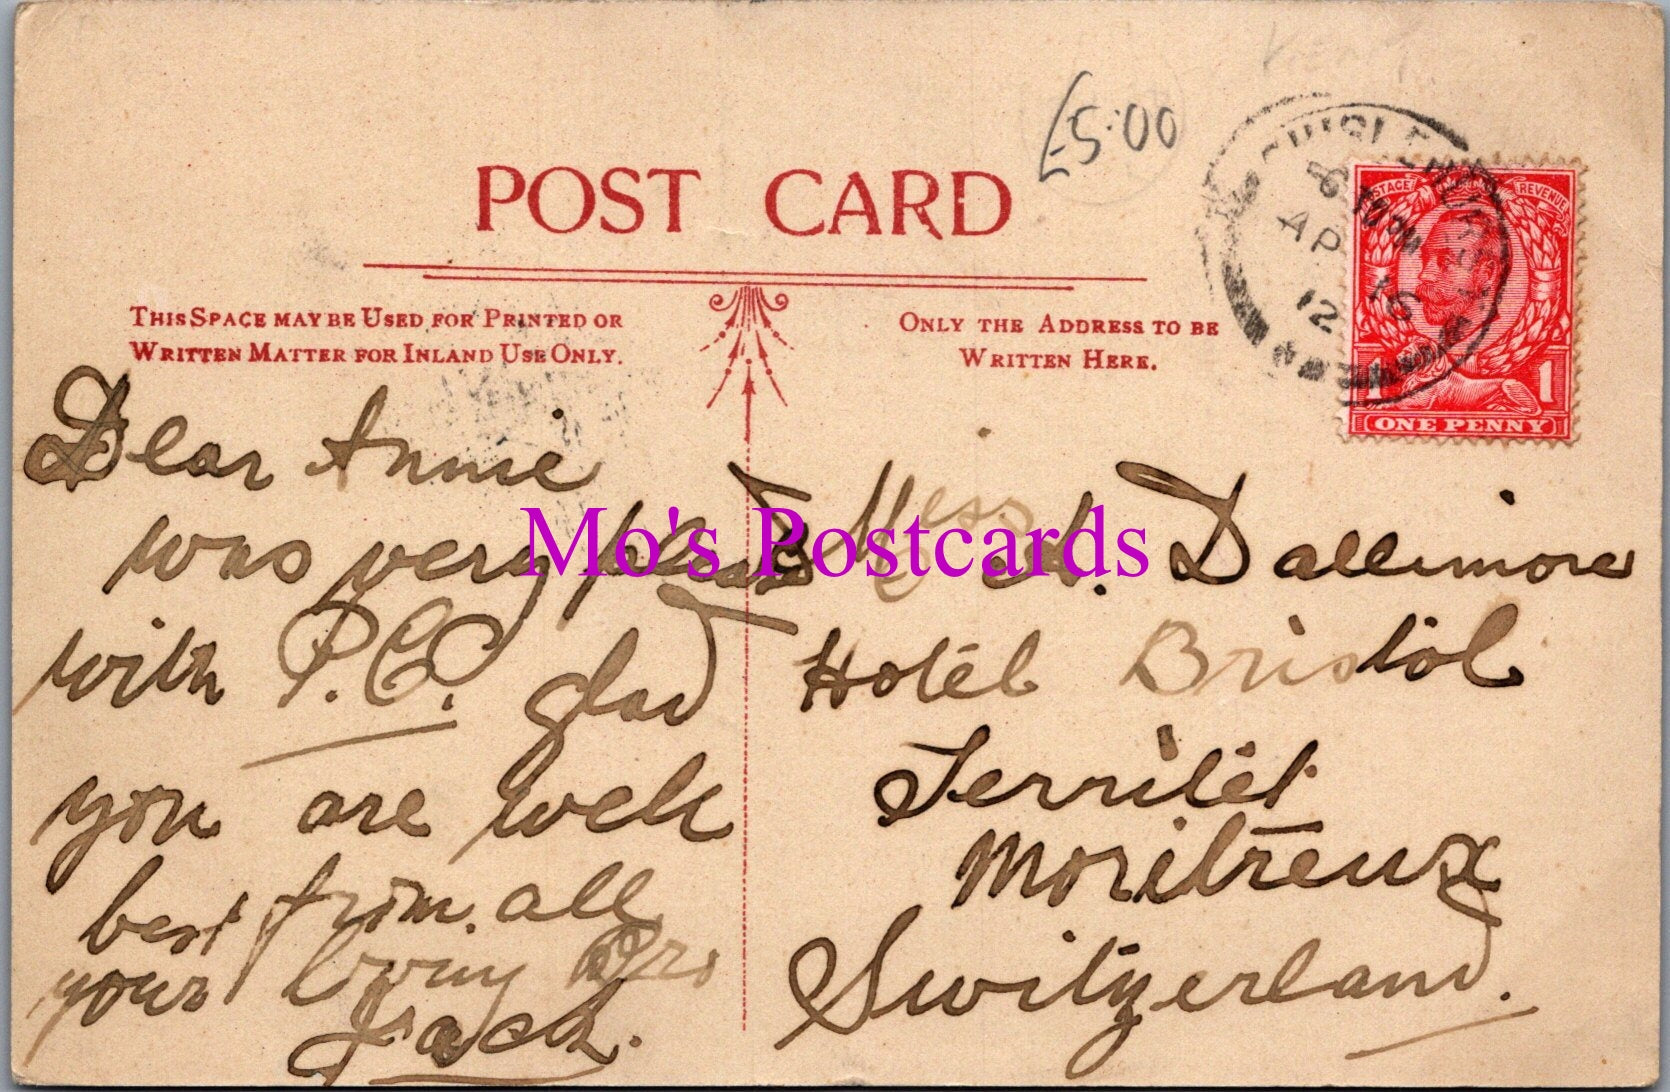 £5:00
POST CARD
CHISLEHURST
AP 16
12
POSTAGE REVENUE
1 1
ONE PENNY
THIS SPACE MAY BE USED FOR PRINTED OR
WRITTEN MATTER FOR INLAND USE ONLY.
ONLY THE ADDRESS TO BE
WRITTEN HERE.
Mo's Postcards
Dear Annie
was very pleased
with P.C. glad
you are well
best from all
your loving Bro
Jack.
Miss A. Dallimore
Hotel Bristol
Territet
Montreux
Switzerland.